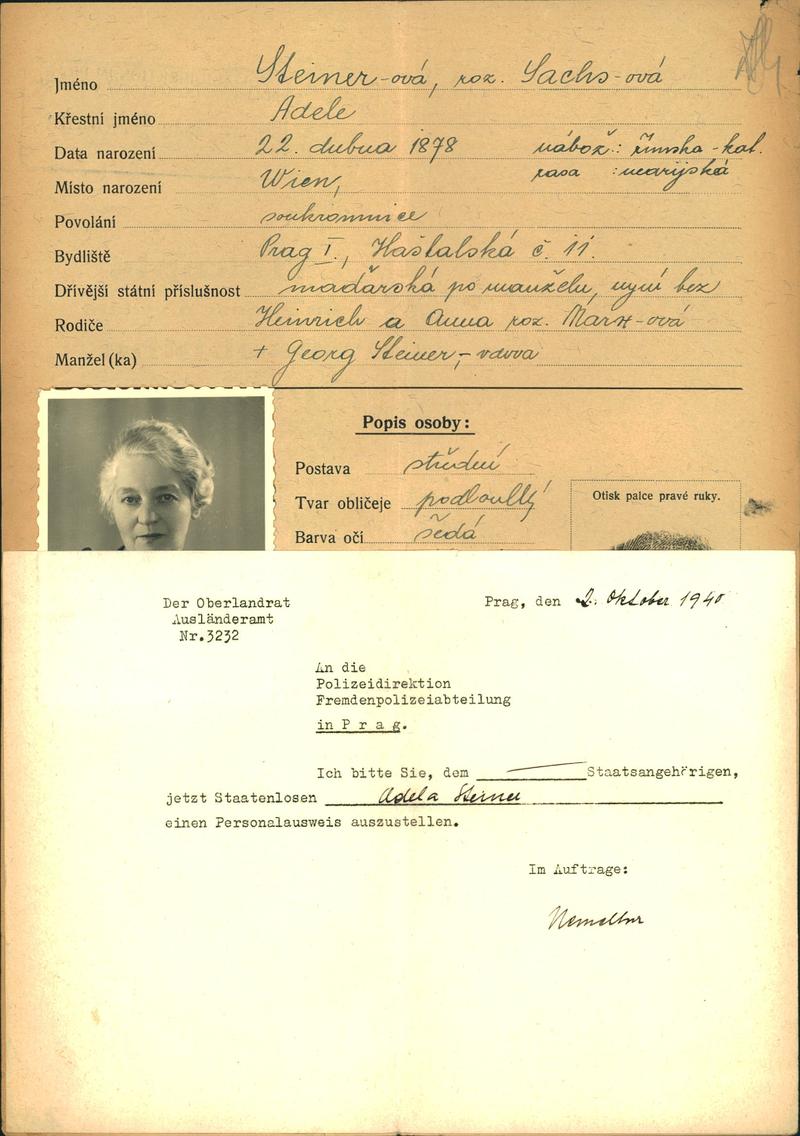 Jméno Steiner-ová, roz. Sachs-ová
Křestní jméno Adele
Data narození 22. dubna 1878 nábož: římska-kat.
rasa: nearijská
Místo narození Wien,
Povolání soukromnice
Bydliště Prag I., Haštalská č. 11.
Dřívější státní příslušnost maďarská po manželu, nyní bez
Rodiče Heinrich a Anna roz. Marx-ová
Manžel (ka) + Georg Steiner,- vdova
Popis osoby:
Postava střední
Tvar obličeje podlouhlý
Barva očí šedá
Otisk palce pravé ruky.
Der Oberlandrat
Ausländeramt
Nr.3232
Prag, den 2. Oktober 1940
An die
Polizeidirektion
Fremdenpolizeiabteilung
in P r a g.
Ich bitte Sie, dem Staatsangehörigen,
jetzt Staatenlosen Adela Steiner
einen Personalausweis auszustellen.
Im Auftrage: